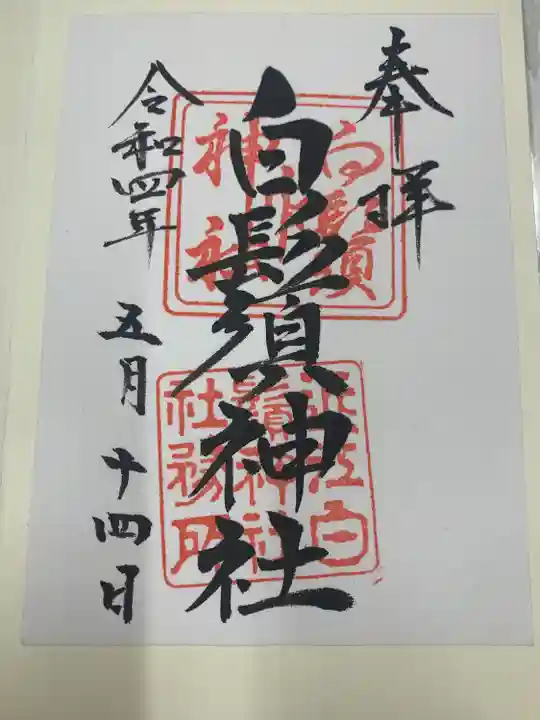 奉拝
白鬚神社
令和四年
五月十四日
白鬚
神社
近江白
鬚神社
社務所